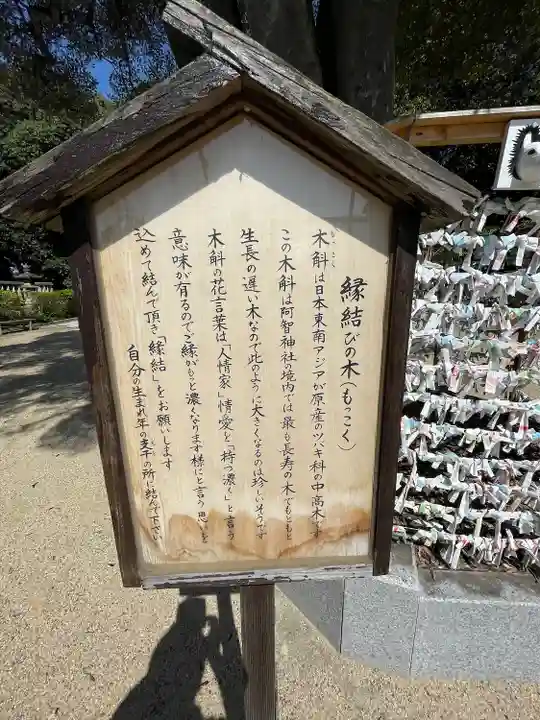 縁結びの木(もっこく)
もっこく
木斛は日本東南アジアが原産のツバキ科の中高木です
この木斛は阿智神社の境内では最も長寿の木でもともと
生長の遅い木なので此のように大きくなるのは珍しいそうです
木斛の花言葉は「人情家」情愛を「持つ濃く」と言う
意味が有るのでご縁がもっと濃くなります様にと言う思いを
込めて結んで頂き「縁結」をお願いします
自分の生まれ年の支干の所に結んで下さい